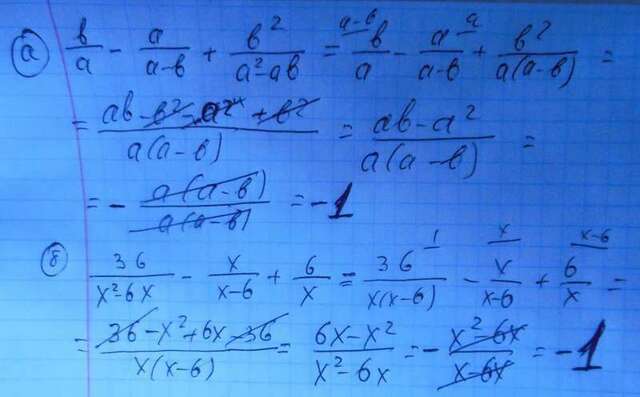 а) в/a - a/(a-в) + в²/(a²-aв) = ᵃ⁻ᵇ в/a - a/(a-в) ᵃ + в²/(a(a-в)) =
= (aв - в² - a² + в²)/(a(a-в)) = (aв - a²)/(a(a-в)) =
= - a(a-в)/a(a-в) = -1
б) 36/(x²-6x) - x/(x-6) + 6/x = 36/(x(x-6)) ¹ - x/(x-6) ˣ + 6/x ˣ⁻⁶ =
= (36 - x² + 6x - 36)/(x(x-6)) = (6x - x²)/(x² - 6x) = - (x² - 6x)/(x - 6x) = -1